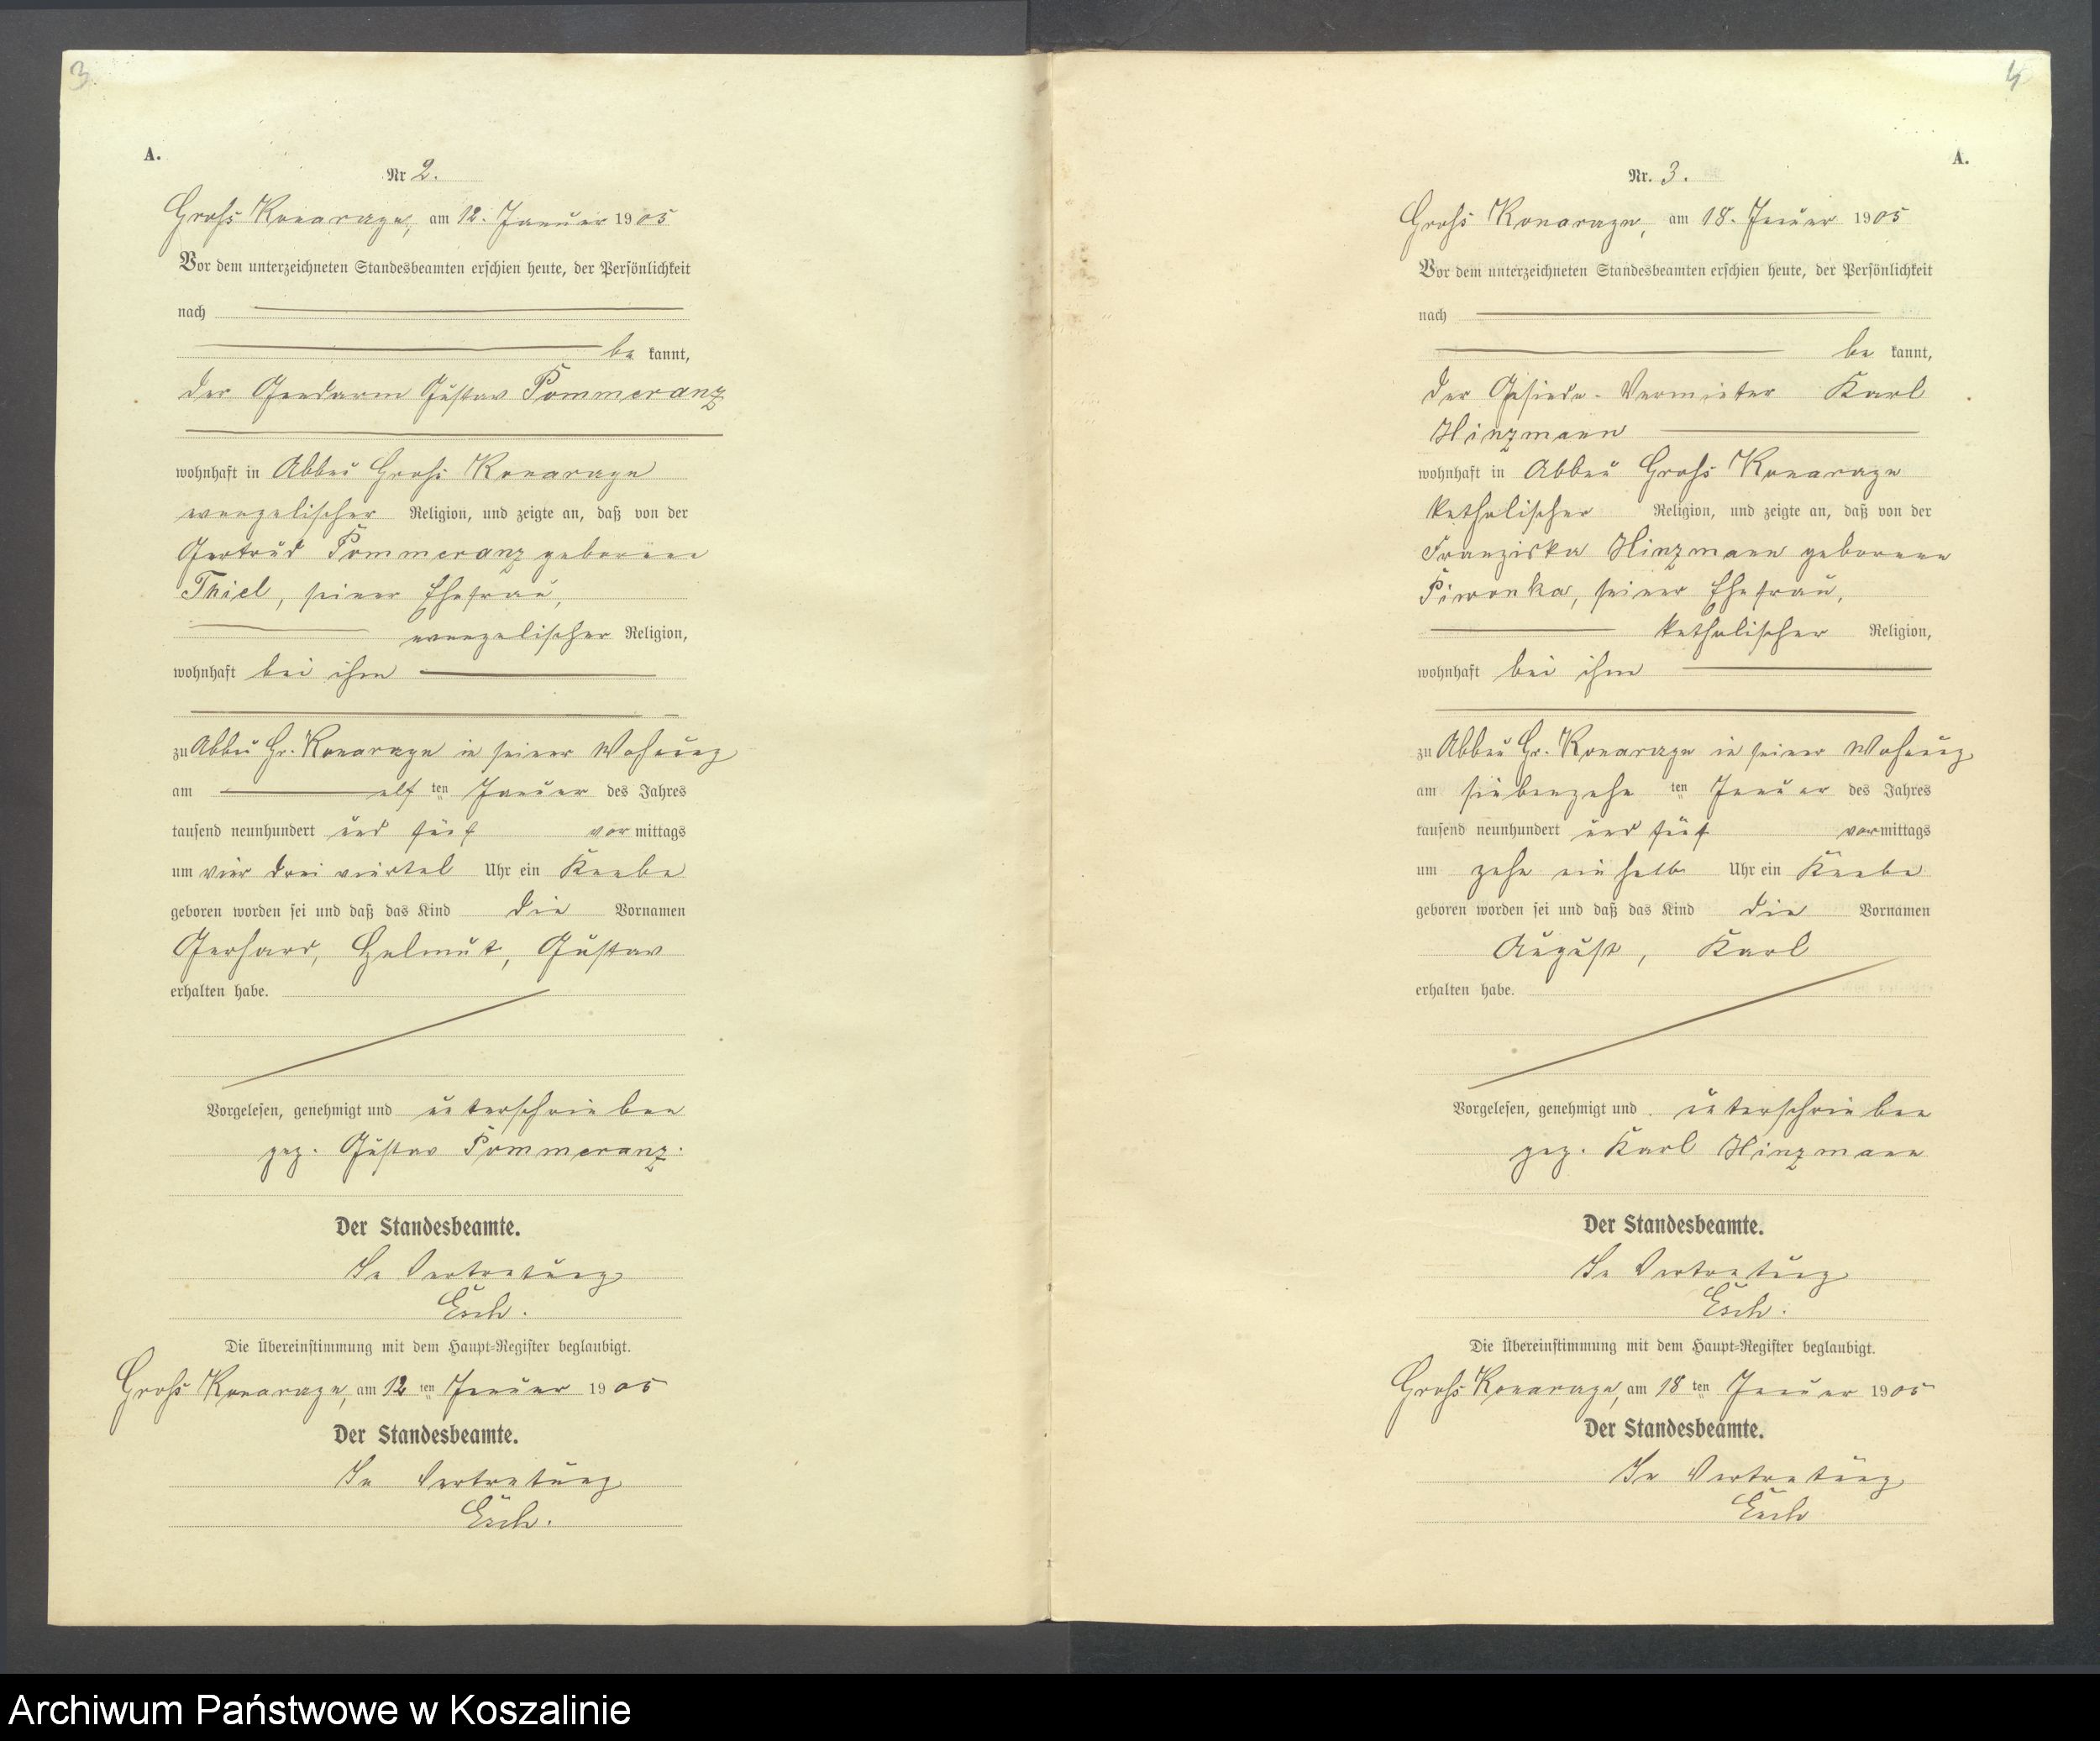 3
A.
Nr 2.
Groß Konarzyn, am 12. Januar 1905
Vor dem unterzeichneten Standesbeamten erschien heute, der Persönlichkeit
nach
be kannt,
der Gendarm Gustav Pommeranz
wohnhaft in Abbau Groß Konarzyn
evangelischer Religion, und zeigte an, daß von der
Gertrud Pommeranz geborene
Thiel, seiner Ehefrau,
evangelischer Religion,
wohnhaft bei ihm
zu Abbau Gr. Konarzyn in seiner Wohnung
am elf ten Januar des Jahres
tausend neunhundert und fünf vor mittags
um vier drei viertel Uhr ein Knabe
geboren worden sei und daß das Kind die Vornamen
Gerhard, Helmut, Gustav
erhalten habe.
Vorgelesen, genehmigt und unterschrieben
gez. Gustav Pommeranz.
Der Standesbeamte.
In Vertretung
Esch.
Die Übereinstimmung mit dem Haupt-Register beglaubigt.
Groß Konarzyn, am 12 ten Januar 1905
Der Standesbeamte.
In Vertretung
Esch.
4
A.
Nr. 3.
Groß Konarzyn, am 18. Januar 1905
Vor dem unterzeichneten Standesbeamten erschien heute, der Persönlichkeit
nach
be kannt,
der Gesinde-Vermieter Karl
Hinzmann
wohnhaft in Abbau Groß Konarzyn
katholischer Religion, und zeigte an, daß von der
Franziska Hinzmann geborene
Piwonka, seiner Ehefrau,
katholischer Religion,
wohnhaft bei ihm
zu Abbau Gr. Konarzyn in seiner Wohnung
am siebenzehn ten Januar des Jahres
tausend neunhundert und fünf vor mittags
um zehn ein halb Uhr ein Knabe
geboren worden sei und daß das Kind die Vornamen
August, Karl
erhalten habe.
Vorgelesen, genehmigt und unterschrieben
gez. Karl Hinzmann
Der Standesbeamte.
In Vertretung
Esch.
Die Übereinstimmung mit dem Haupt-Register beglaubigt.
Groß Konarzyn, am 18 ten Januar 1905
Der Standesbeamte.
In Vertretung
Esch
Archiwum Państwowe w Koszalinie